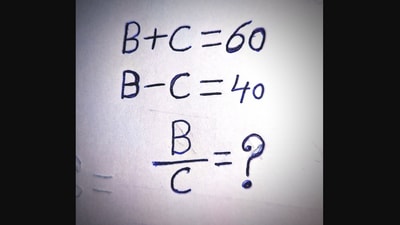 B+C=60
B-C=40
B/C=?